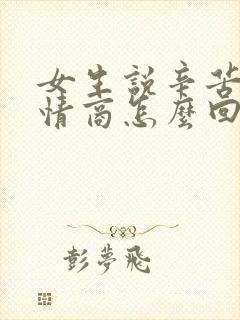 女生說辛苦
情商怎麼回
彭夢飛